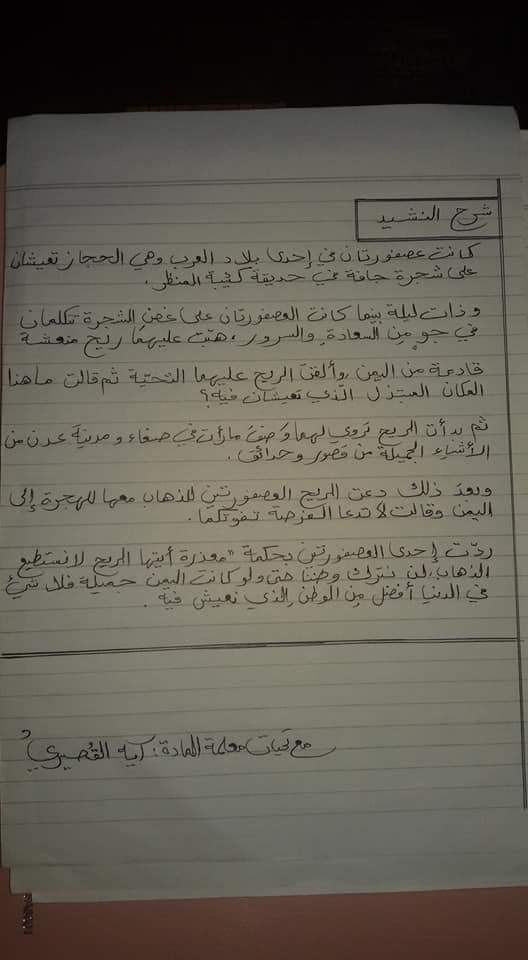 شرح النشيد
كانت عصفورتان في إحدى بلاد العرب وهي الحجاز تعيشان
على شجرة جافة في حديقة كئيبة المنظر.
وذات ليلة بينما كانت العصفورتان على غصن الشجرة تتكلمان
في جو من السعادة والسرور، هبت عليهما ريح منعشة
قادمة من اليمن وألقت الريح عليهما التحية ثم قالت ما هذا
المكان المبتذل الذي تعيشان فيه؟
ثم بدأت الريح تروي لهما وصف ما رأت في صنعاء ومدينة عدن من
الأشياء الجميلة من قصور وحدائق.
وبعد ذلك دعت الريح العصفورتين للذهاب معها للهجرة إلى
اليمن وقالت لا تدعا الفرصة تفوتكما.
ردّت إحدى العصفورتين بحكمة "معذرة أيتها الريح لا نستطيع
الذهاب، لن نترك وطننا حتى ولو كانت اليمن جميلة فلا شيء
في الدنيا أفضل من الوطن الذي نعيش فيه.
مع تحيات معلمة المادة: آية القصيري